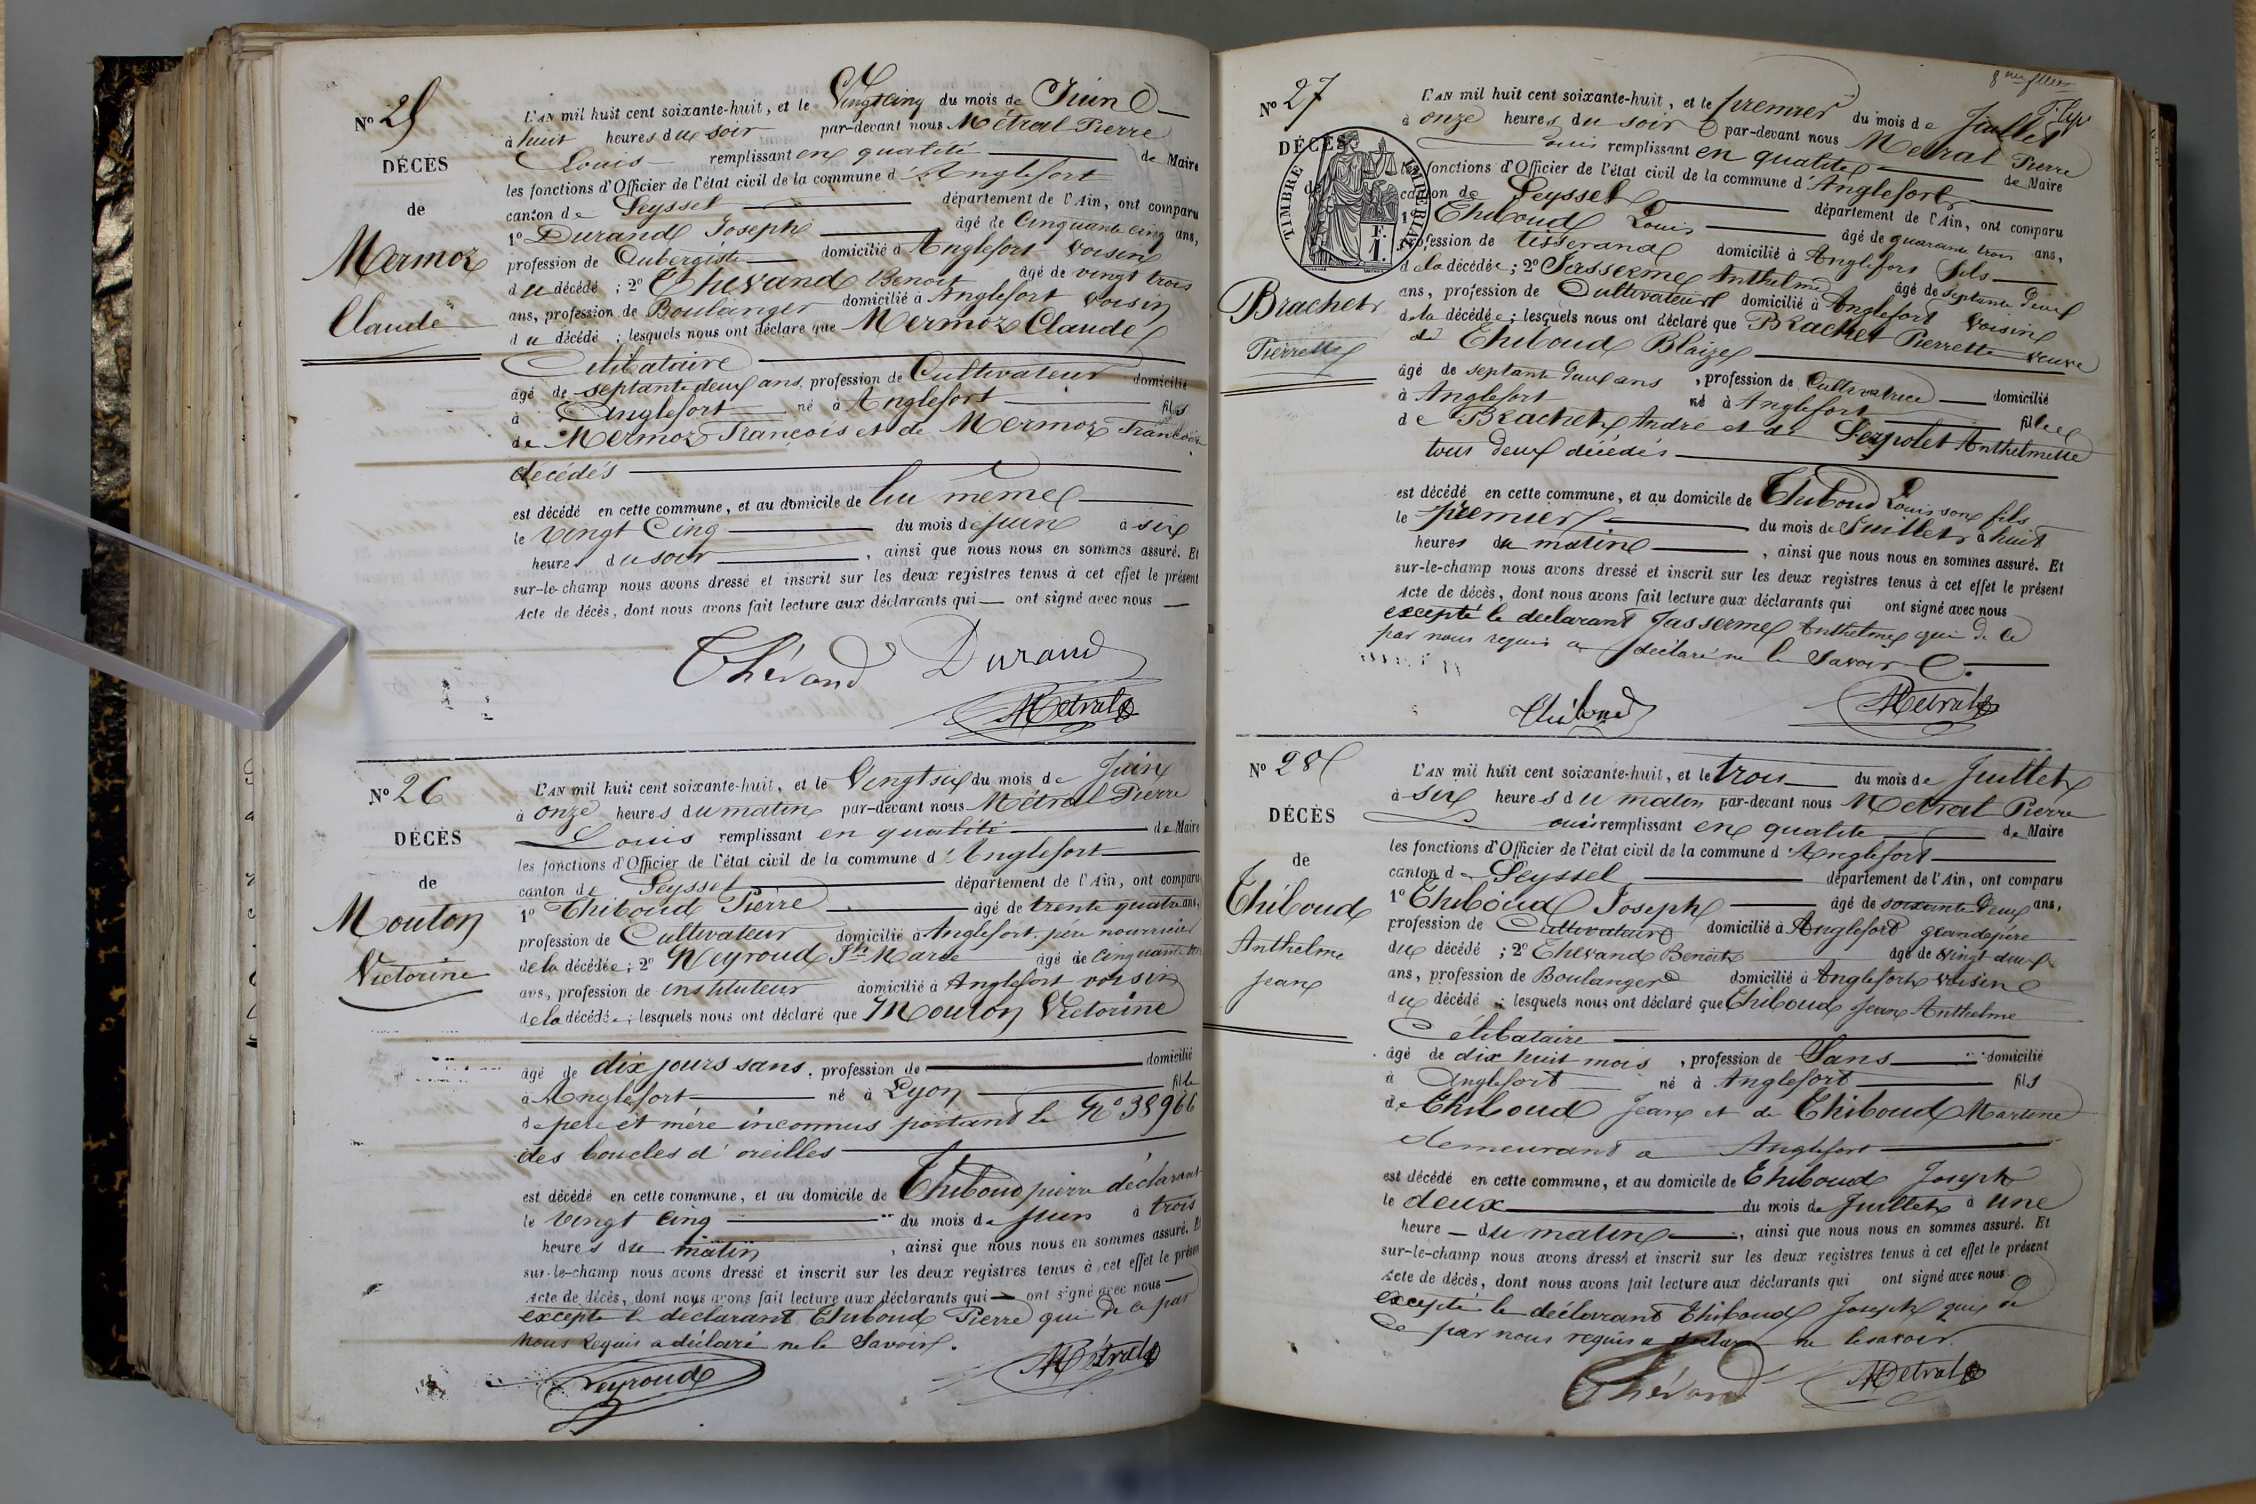 Nº 25
DÉCÈS
de
Mermoz
Claude
L'AN mil huit cent soixante-huit, et le Vingt cinq du mois de Juin
à huit heures du soir par-devant nous Métral Pierre
Louis remplissant en qualité de Maire
les fonctions d'Officier de l'état civil de la commune d'Anglefort
canton de Seyssel département de l'Ain, ont comparu
1º Durand Joseph âgé de Cinquante cinq ans,
profession de Aubergiste domicilié à Anglefort voisin
du décédé ; 2º Thévand Benoit âgé de vingt trois
ans, profession de Boulanger domicilié à Anglefort voisin
du décédé ; lesquels nous ont déclaré que Mermoz Claude
Célibataire
âgé de septante deux ans, profession de Cultivateur domicilié
à Anglefort né à Anglefort fils
de Mermoz François et de Mermoz
décédés
est décédé en cette commune, et au domicile de lui même
le vingt Cinq du mois de juin à six
heures du soir , ainsi que nous nous en sommes assuré. Et
sur-le-champ nous avons dressé et inscrit sur les deux registres tenus à cet effet le présent
Acte de décès, dont nous avons fait lecture aux déclarants qui ont signé avec nous
Thévand Durand
Métral
Nº 26
DÉCÈS
de
Mouton
Victorine
L'AN mil huit cent soixante-huit, et le Vingt six du mois de Juin
à onze heures du matin par-devant nous Métral Pierre
Louis remplissant en qualité de Maire
les fonctions d'Officier de l'état civil de la commune d'Anglefort
canton de Seyssel département de l'Ain, ont comparu
1º Thiboud Pierre âgé de trente quatre ans,
profession de Cultivateur domicilié à Anglefort père nourricier
de la décédée ; 2º Neyroud Marie âgé de Cinquante
ans, profession de instituteur domicilié à Anglefort voisin
de la décédée ; lesquels nous ont déclaré que Mouton Victorine
âgé de dix jours sans, profession de domicilié
à Anglefort né à Lyon fille
de père et mère inconnus portant le Nº 35966
des boucles d'oreilles
est décédé en cette commune, et au domicile de Thiboud pierre déclarant
le vingt cinq du mois de juin à trois
heures du matin , ainsi que nous nous en sommes assuré. Et
sur-le-champ nous avons dressé et inscrit sur les deux registres tenus à cet effet le présent
Acte de décès, dont nous avons fait lecture aux déclarants qui ont signé avec nous
excepté le déclarant Thiboud Pierre qui de ce par
nous requis a déclaré ne le Savoir.
Neyroud Métral
Nº 27
DÉCÈS
de
TIMBRE IMPERIAL
F.
1.
Brachet
Pierrette
L'AN mil huit cent soixante-huit, et le premier du mois de Juillet
à onze heures du soir par-devant nous Metral Pierre
Louis remplissant en qualité de Maire
les fonctions d'Officier de l'état civil de la commune d'Anglefort
canton de Seyssel département de l'Ain, ont comparu
1º Thiboud Louis âgé de quarante trois ans,
profession de tisserand domicilié à Anglefort fils
de la décédée ; 2º Jasserme Anthelme âgé de septante deux
ans, profession de Cultivateur domicilié à Anglefort voisin
de la décédée ; lesquels nous ont déclaré que Brachet Pierrette veuve
de Thiboud Blaize
âgé de septante deux ans , profession de Cultivatrice domicilié
à Anglefort né à Anglefort fille
de Brachet André et de Serpolet Anthelmette
tous deux décédés
est décédé en cette commune, et au domicile de Thiboud Louis son fils
le premier du mois de Juillet à huit
heures du matin , ainsi que nous nous en sommes assuré. Et
sur-le-champ nous avons dressé et inscrit sur les deux registres tenus à cet effet le présent
Acte de décès, dont nous avons fait lecture aux déclarants qui ont signé avec nous
excepté le déclarant Jasserme Anthelme qui de ce
par nous requis a déclaré ne le Savoir.
Thiboud Métral
Nº 28
DÉCÈS
de
Thiboud
Anthelme
Jean
L'AN mil huit cent soixante-huit, et le trois du mois de Juillet
à six heures du matin par-devant nous Metral Pierre
ouis remplissant en qualité de Maire
les fonctions d'Officier de l'état civil de la commune d'Anglefort
canton de Seyssel département de l'Ain, ont comparu
1º Thiboud Joseph âgé de soixante deux ans,
profession de Cultivateur domicilié à Anglefort grand père
du décédé ; 2º Thévand Benoit âgé de vingt deux
ans, profession de Boulanger domicilié à Anglefort voisin
du décédé ; lesquels nous ont déclaré que Thiboud Jean Anthelme
Célibataire
âgé de dix huit mois , profession de Sans domicilié
à Anglefort né à Anglefort fils
de Thiboud Jean et de Thiboud Martine
demeurant à Anglefort
est décédé en cette commune, et au domicile de Thiboud Joseph
le deux du mois de Juillet à une
heure du matin , ainsi que nous nous en sommes assuré. Et
sur-le-champ nous avons dressé et inscrit sur les deux registres tenus à cet effet le présent
Acte de décès, dont nous avons fait lecture aux déclarants qui ont signé avec nous
excepté le déclarant Thiboud Joseph qui de
ce par nous requis a déclaré ne le savoir.
Thévand Métral